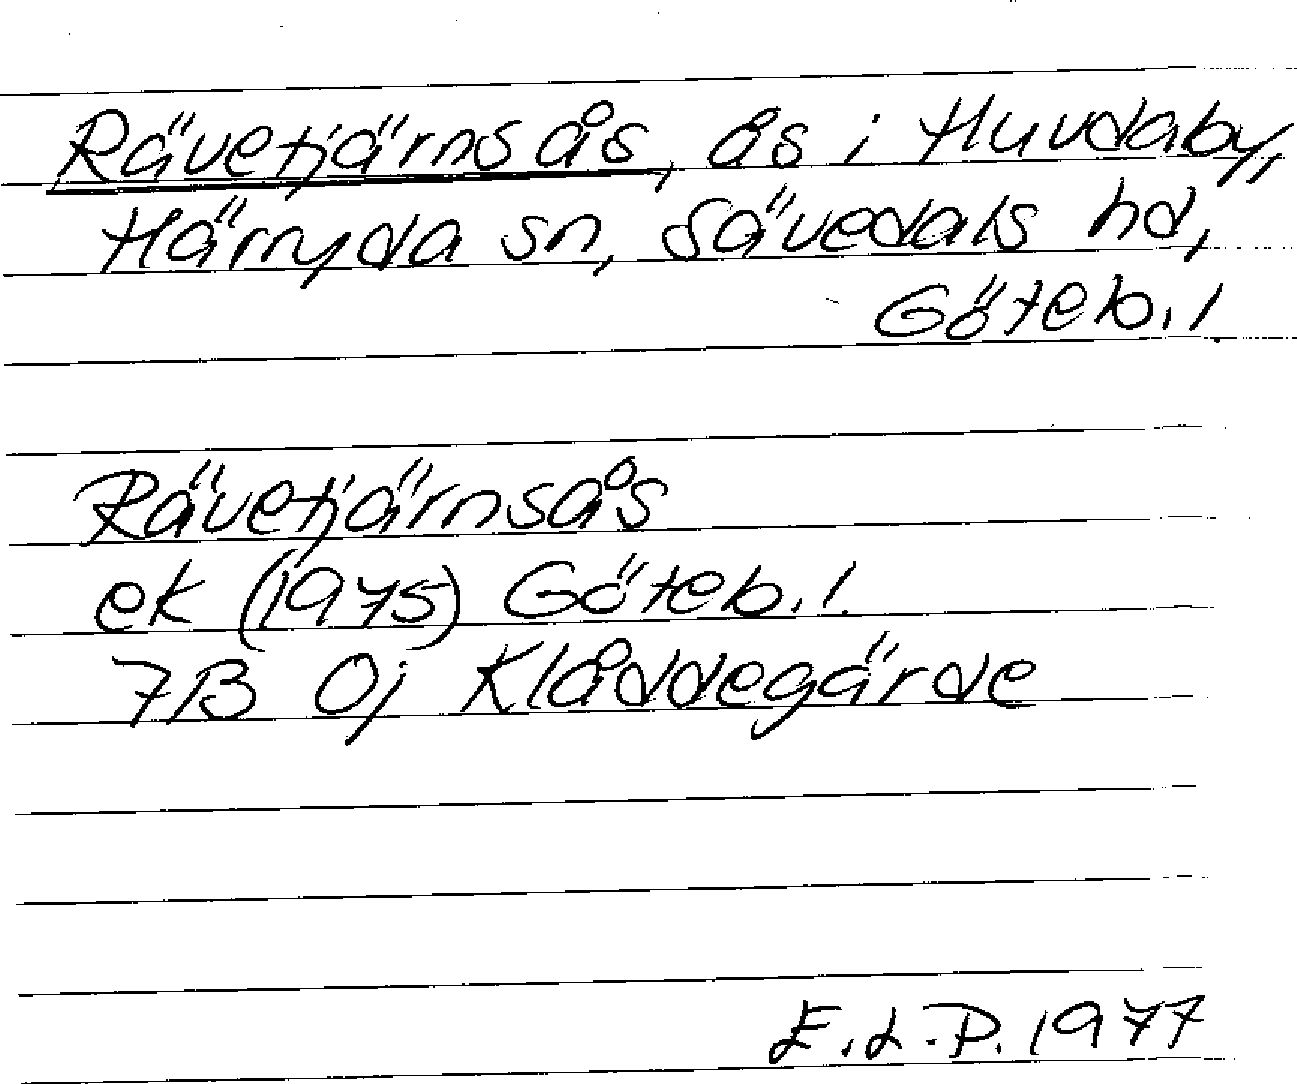 Rävetjärnsås, ås i Huvdaby,
Härryda sn, Sävedals hd,
Göteb. l.
Rävetjärnsås
ek (1975) Göteb. l.
7B 0j Klåddegärde
E.L.P. 1977